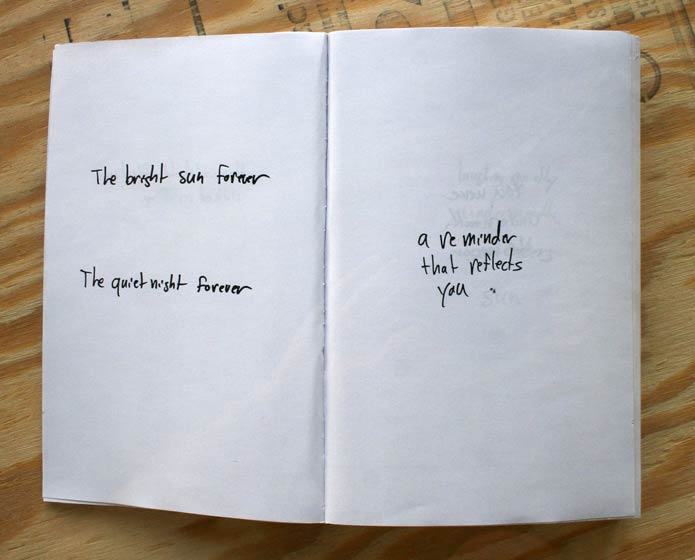 The bright sun forever
The quiet night forever
a reminder
that reflects
you